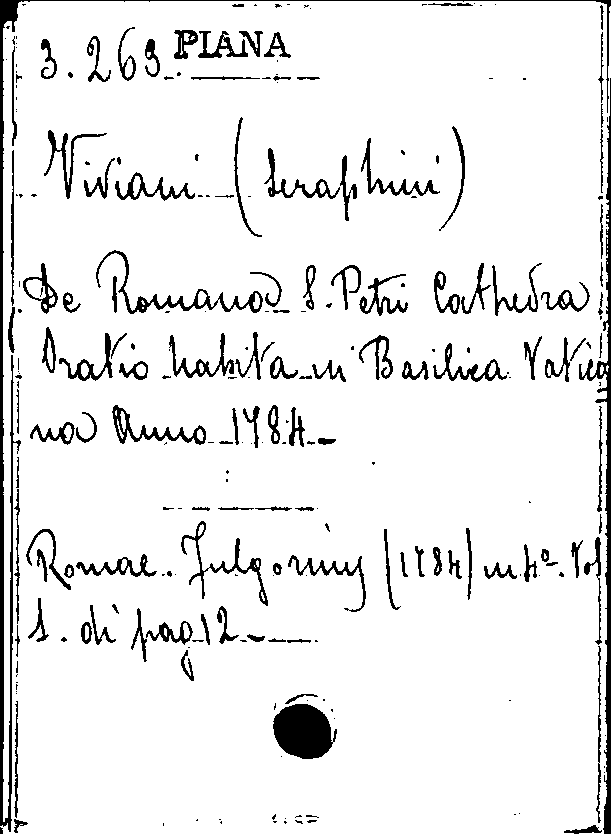 3.263 PIANA
Viviani (Seraphini)
De Romana S. Petri Cathedra
Oratio habita in Basilica Vatica
na Anno 1784-
Romae. Fulgonius (1784) in 4º. Vol
1. di pag 12-